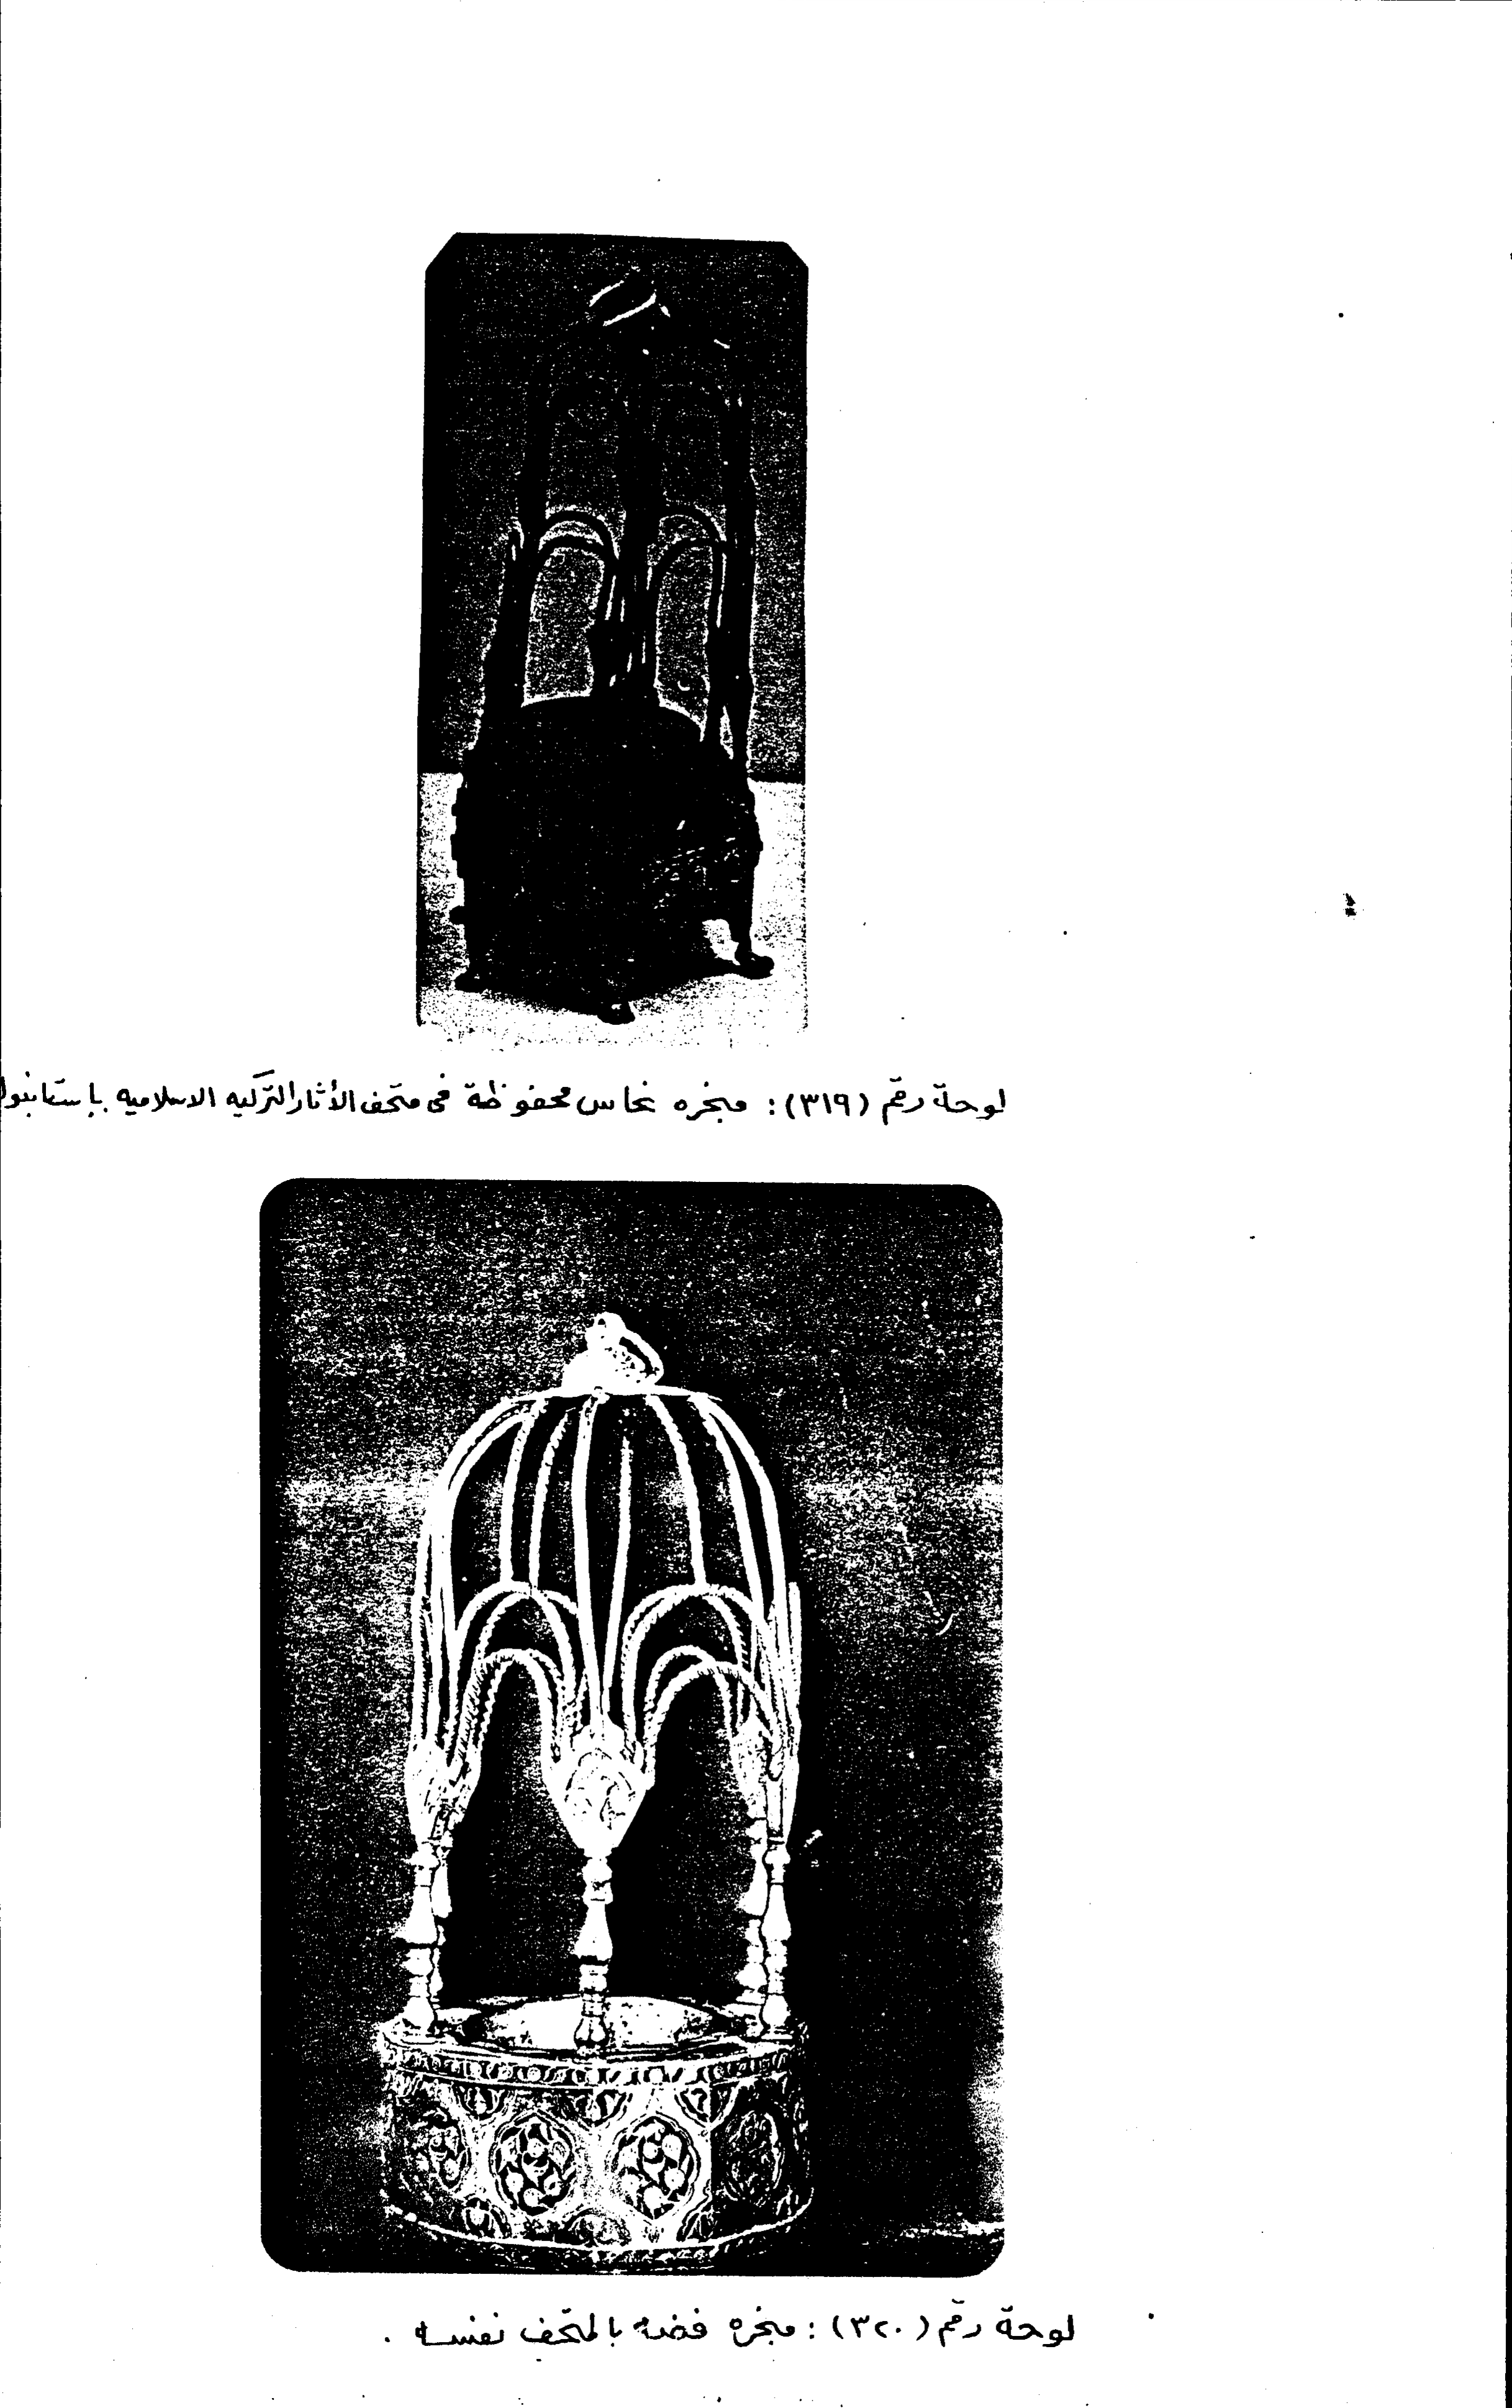 لوحة رقم (٣١٩): مبخره نحاس محفوظة فى متحف الأثار التركيه الاسلاميه بإستانبول
لوحة رقم (٣٢٠): مبخره فضه بالمتحف نفسه .